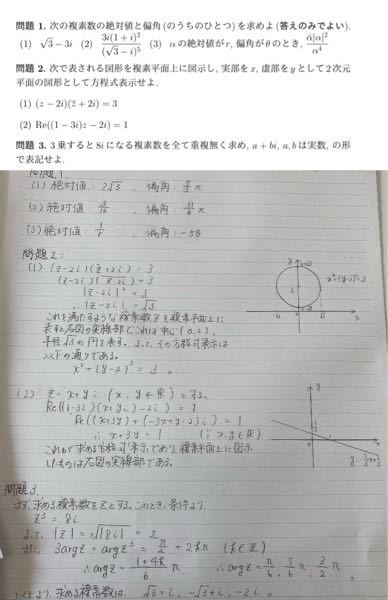 問題 1. 次の複素数の絶対値と偏角 (のうちのひとつ) を求めよ (答えのみでよい).
(1) √3 − 3i (2) 3i(1+i)²/(√3−i)⁵ (3) α の絶対値が r, 偏角が θ のとき, ᾱ|α|²/α⁴
問題 2. 次で表される図形を複素平面上に図示し, 実部を x, 虚部を y として 2 次元
平面の図形として方程式表示せよ.
(1) (z − 2i)(z̄ + 2i) = 3
(2) Re((1 − 3i)z − 2i) = 1
問題 3. 3 乗すると 8i になる複素数を全て重複無く求め, a + bi, a, b は実数, の形
で表記せよ.
問題1.
(1) 絶対値: 2√3 , 偏角: 5/3 π
(2) 絶対値: 3/16 , 偏角: 11/6 π
(3) 絶対値: 1/r , 偏角: −5θ
問題2:
(1) (z−2i)(z̄+2i) = 3
(z−2i)(z−2i) = 3
|z−2i|² = 3
∴ |z−2i| = √3
これを満たすような複素数zを複素平面上に
表すと右図の実線部で,これは中心(0,2),
半径√3の円を表す。よって,その方程式表示は
以下の通りである。
x²+(y−2)² = 3 。
y
x²+(y−2)²=3
2
0
x
(2) z = x+yi (x,y∈ℝ)とする。
Re((1−3i)(x+yi)−2i) = 1
Re((x+3y)+(−3x+y−2)i) = 1
∴ x+3y = 1 (∵ x,y∈ℝ)
これが求める方程式表示であり、複素平面上に図示
したものは右図の実線部である。
y
x
0
1
y=−1/3x+1/3
問題3.
まず,求める複素数をzとする。このとき,条件より,
z³ = 8i
よって, |z| = ³√|8i| = 2
また, 3argz = argz³ = π/2 + 2kπ (k∈ℤ)
∴ argz = (1+4k)/6 π ∴ argz = π/6, 5/6 π, 3/2 π 。
以上より,求める複素数は、 √3+i, −√3+i, −2i 。